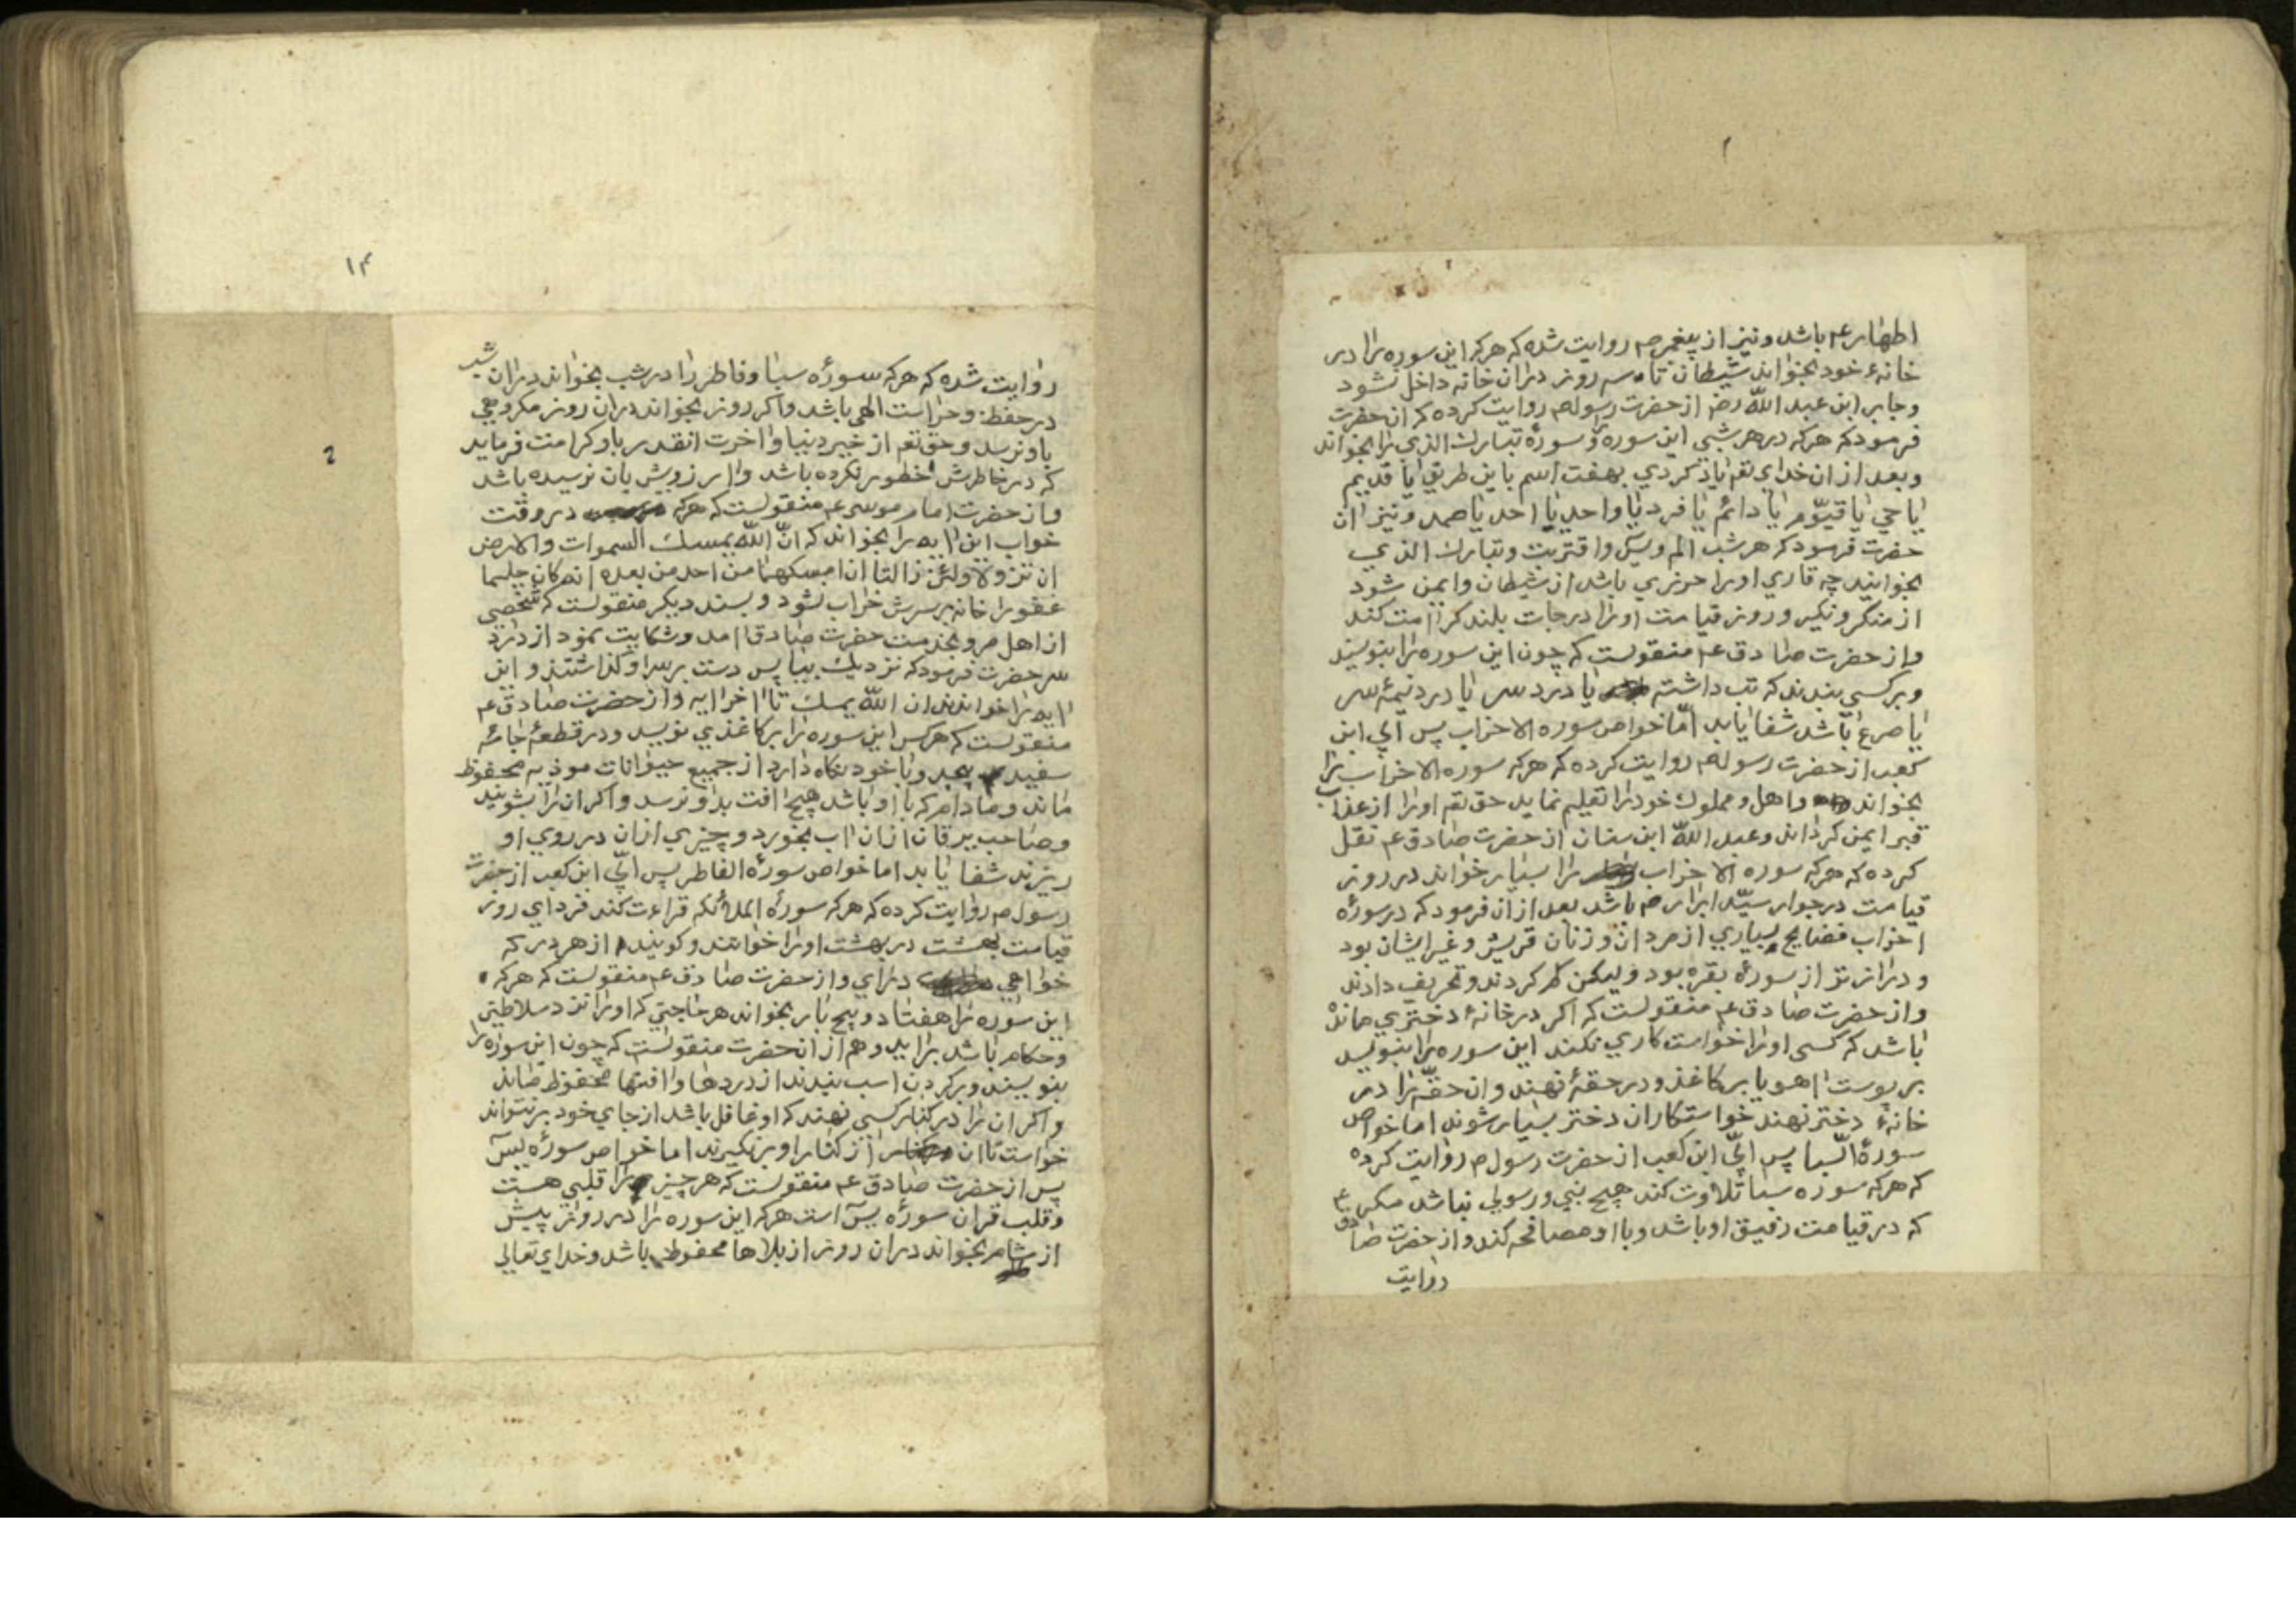 اطهار ع م باشد و نیز از پیغمبر ص م روایت شده که هرکه این سوره را در
خانهٔ خود بخواند شیطان تا سه روز در ان خانه داخل نشود
و جابر ابن عبد اللّه رض از حضرت رسول ص م روایت کرده که ان حضرت
فرمود که هرکه در هر شبی این سوره و سورهٔ تبارك الذی را بخواند
و بعد از ان خدای تعم یاد کردی بهفت اسم باین طریق یا قدیم
یا حي یا قیّوم یا دائم یا فرد یا واحد یا احد یا صمد و نیز ان
حضرت فرمود که هر شب الم و یس و اقتربت و تبارك الذی
بخوانید چه قاری او را حرزی باشد از شیطان و ایمن شود
از منکر و نکیر و روز قیامت او را درجات بلند کرامت کند
و از حضرت صادق ع م منقولست که چون این سوره را بنویسند
و بر کسی بندند که تب داشته یا درد سر یا درد نیمهٔ سر
یا صرع باشد شفا یابد امّا خواص سوره الاحزاب پس ابي ابن
کعب از حضرت رسول ص م روایت کرده که هرکه سوره الاحزاب را
بخواند و اهل و مملوك خود را تعلیم نماید حق تعم او را از عذاب
قبر ایمن کرداند و عبد اللّه ابن سنان از حضرت صادق ع م نقل
کرده که هرکه سوره الاحزاب را بسیار خواند در روز
قیامت در جوار سیّد ابرار ص م باشد بعد از ان فرمود که در سورهٔ
احزاب فضایح بسیاری از مردان و زنان قریش و غیر ایشان بود
و دراز تر از سورهٔ بقره بود و لیکن کم کردند و تحریف دادند
و از حضرت صادق ع م منقولست که اکر در خانهٔ دختری مانده
باشد که کسی او را خواست کاری نکند این سوره را بنویسد
بر پوست اهو یا بر کاغذ و در حقهٔ نهند و ان حقّه را در
خانهٔ دختر نهند خواستکاران دختر بسیار شوند اما خواص
سورهٔ السبا پس ابيّ ابن کعب از حضرت رسول م روایت کرده
که هرکه سوره سبا تلاوت کند هیچ نبی و رسولی نباشد مکر
که در قیامت رفیق او باشد و با او مصافحه کند و از حضرت صادق ع
روایت
۱۴
روایت شده که هرکه سورهٔ سبا و فاطر را در شب بخواند در ان شب
در حفظ و حراست الهی باشد و اکر روز بخواند در ان روز مکروهی
باو نرسد و حق تعم از خیر دنیا و اخرت انقدر باو کرامت فرماید
که در خاطرش خطور نکرده باشد و ارزویش بان نرسیده باشد
و از حضرت امام موسی ع م منقولست که هرکه در وقت
خواب این ایه را بخواند که انّ اللّه یمسك السموات والارض
ان تزولا ولئن زالتا ان امسکهما من احد من بعده انه کان حلیما
غفورا خانه بر سرش خراب نشود و بسند دیکر منقولست که شخصی
از اهل مرو بخدمت حضرت صادق امد و شکایت نمود از درد
سر حضرت فرمود که نزدیك بیا پس دست بر سر او کذاشتند و این
ایه را خواندند ان اللّه یمسك تا اخر ایه و از حضرت صادق ع م
منقولست که هرکس این سوره را بر کاغذی نویسد و در قطعهٔ جامهٔ
سفید پیچد و با خود نکاه دارد از جمیع حیوانات موذیه محفوظ
ماند و مادام که با او باشد هیچ افت بدو نرسد و اکر ان را بشویند
و صاحب یرقان از ان اب بخورد و چیزی از ان در روی او
ریزند شفا یابد اما خواص سورهٔ الفاطر پس ابيّ ابن کعب از حضرت
رسول م روایت کرده که هرکه سورهٔ الملائکه قراءت کند فردای روز
قیامت بهشت در بهشت او را خوانند و کویند از هر در که
خواهی درای و از حضرت صادق ع م منقولست که هرکه
این سوره را هفتاد و پنج بار بخواند هر حاجتی که او را نزد سلاطین
و حکام باشد براید و هم از ان حضرت منقولست که چون این سوره را
بنویسند و بر کردن اسب بندند از دردها و افتها محفوظ ماند
و اکر ان را در کنار کسی نهند که او غافل باشد از جای خود بر نتواند
خواست تا ان را از کنار او بر نکیرند اما خواص سورهٔ یس
پس از حضرت صادق ع م منقولست که هر چیز را قلبی هست
و قلب قران سورهٔ یس است هرکه این سوره را در روز پیش
از شام بخواند در ان روز از بلاها محفوظ باشد و خدای تعالی